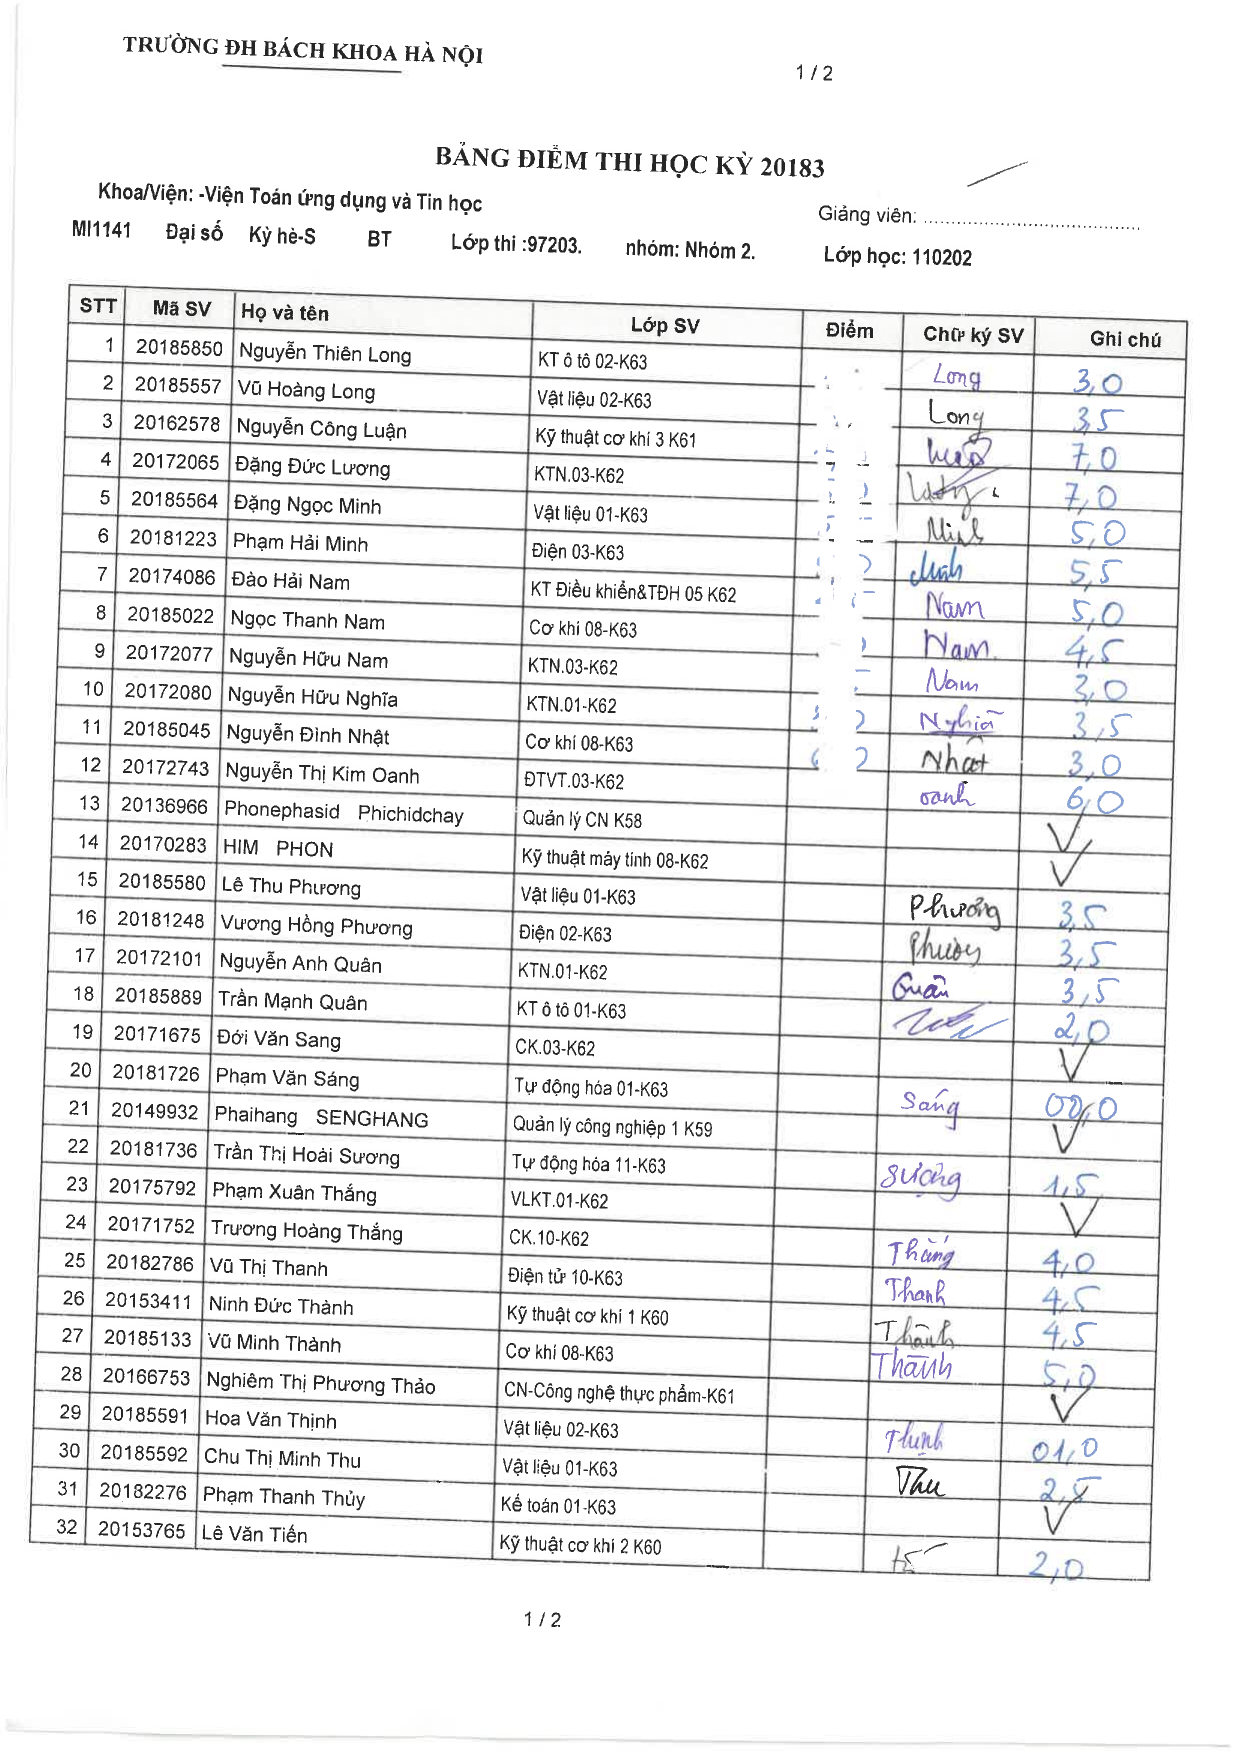 TRƯỜNG ĐH BÁCH KHOA HÀ NỘI
1 / 2
BẢNG ĐIỂM THI HỌC KỲ 20183
Khoa/Viện: -Viện Toán ứng dụng và Tin học
Giảng viên: ........................................
MI1141 Đại số Kỳ hè-S BT Lớp thi :97203. nhóm: Nhóm 2. Lớp học: 110202
STT Mã SV Họ và tên Lớp SV Điểm Chữ ký SV Ghi chú
1 20185850 Nguyễn Thiên Long KT ô tô 02-K63 Long 3,0
2 20185557 Vũ Hoàng Long Vật liệu 02-K63 Long 3,5
3 20162578 Nguyễn Công Luận Kỹ thuật cơ khí 3 K61 7,0
4 20172065 Đặng Đức Lương KTN.03-K62 7,0
5 20185564 Đặng Ngọc Minh Vật liệu 01-K63 Minh 5,0
6 20181223 Phạm Hải Minh Điện 03-K63 Minh 5,5
7 20174086 Đào Hải Nam KT Điều khiển&TĐH 05 K62 Nam 5,0
8 20185022 Ngọc Thanh Nam Cơ khí 08-K63 Nam 4,5
9 20172077 Nguyễn Hữu Nam KTN.03-K62 Nam 3,0
10 20172080 Nguyễn Hữu Nghĩa KTN.01-K62 Nghĩa 3,5
11 20185045 Nguyễn Đình Nhật Cơ khí 08-K63 Nhật 3,0
12 20172743 Nguyễn Thị Kim Oanh ĐTVT.03-K62 oanh 6,0
13 20136966 Phonephasid Phichidchay Quản lý CN K58 ✓
14 20170283 HIM PHON Kỹ thuật máy tính 08-K62 ✓
15 20185580 Lê Thu Phương Vật liệu 01-K63 Phương 3,5
16 20181248 Vương Hồng Phương Điện 02-K63 Phương 3,5
17 20172101 Nguyễn Anh Quân KTN.01-K62 Quân 3,5
18 20185889 Trần Mạnh Quân KT ô tô 01-K63 2,0
19 20171675 Đới Văn Sang CK.03-K62 ✓
20 20181726 Phạm Văn Sáng Tự động hóa 01-K63 Sáng 00,0
21 20149932 Phaihang SENGHANG Quản lý công nghiệp 1 K59 ✓
22 20181736 Trần Thị Hoài Sương Tự động hóa 11-K63 Sương 1,5
23 20175792 Phạm Xuân Thắng VLKT.01-K62 ✓
24 20171752 Trương Hoàng Thắng CK.10-K62 Thắng 4,0
25 20182786 Vũ Thị Thanh Điện tử 10-K63 Thanh 4,5
26 20153411 Ninh Đức Thành Kỹ thuật cơ khí 1 K60 Thành 4,5
27 20185133 Vũ Minh Thành Cơ khí 08-K63 Thành 5,0
28 20166753 Nghiêm Thị Phương Thảo CN-Công nghệ thực phẩm-K61 ✓
29 20185591 Hoa Văn Thịnh Vật liệu 02-K63 Thịnh 01,0
30 20185592 Chu Thị Minh Thu Vật liệu 01-K63 Thu 2,5
31 20182276 Phạm Thanh Thủy Kế toán 01-K63 ✓
32 20153765 Lê Văn Tiến Kỹ thuật cơ khí 2 K60 2,0
1 / 2